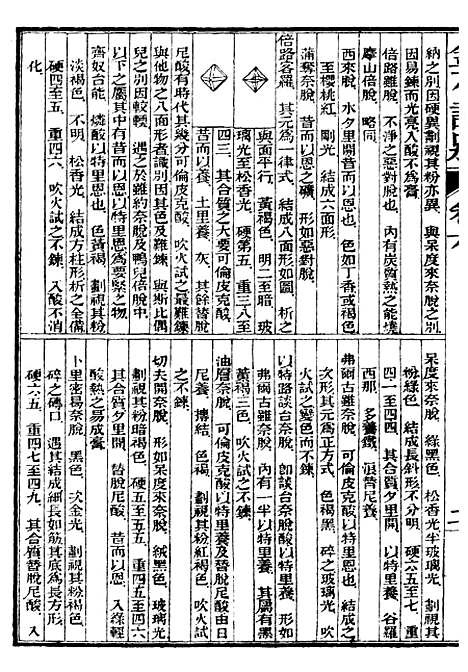 納之別因硬異劃視其粉亦異　與呆度來奈脫之別
因易鍊而光亮入酸不為膏
倍路雖脫　不淨之惡對脫也　內有炭質熱之能燒
摩山倍脫　略同
西來脫　水夕里開昔而以恩也　色如丁香或褐色
至櫻桃紅　剛光　結成六面形
蒲奪奈脫　昔而以恩之礦　形如惡對脫
倍路客羅　其元為一律式　結成八面形如圖　析之
與面平行　黃褐色　明二至暗　玻
璃光至松香光　硬第五　重三八至
四三　其合質之大要可倫皮克酸
昔而以養　土里養　灰　其餘替脫
尼酸有時代其幾分可倫皮克酸　吹火試之最難鍊
與他物之八面形者識別因其色及難鍊　與斯比偶
兒之別因較輭　遇之於雖約奈脫及鴨兒倍脫中
以下之屬其中有昔而以恩以特里恩為要緊之物
齊奴台能　燐酸以特里恩也　色黃褐　劃視其粉
淡褐色　不明　松香光　結成方柱形析之全備
硬四至五　重四六　吹火試之不鍊　入酸不消
化
呆度來奈脫　綠黑色　松香光半玻璃光　劃視其
粉綠色　結成長斜形不分明　硬六五至七　重
四一至四四　其合質夕里開　以特里養　谷羅
西那　多養鐵　浪替尼養
弗爾古雖奈脫　可倫皮克酸以特里恩也　結成
次形其元為正方式　色褐黑　碎之玻璃光　吹
火試之變色而不鍊
以特路談台奈脫　卽談台奈脫酸以特里養　形如
弗爾古雖奈脫　內有一半以特里養　其屬有黑
黃褐三色　吹火試之不鍊
油層奈脫　可倫皮克酸以特里養及替脫尼酸由日
尼養　摶結　色褐　劃視其粉紅褐色　吹火試
之不鍊
切夫開奈脫　形如呆度來奈脫　絨黑色　玻璃光
劃視其粉暗褐色　硬五至五五　重四五至四六
其合質夕里開　替脫尼酸　昔而以恩　入綠輕
酸熱之易成膏
卜里密易奈脫　黑色　次金光　劃視其粉褐色
碎之磚口　遇其結成細長如筋其底為長方形
硬六五　重四七至四九　其合質替脫尼酸　入